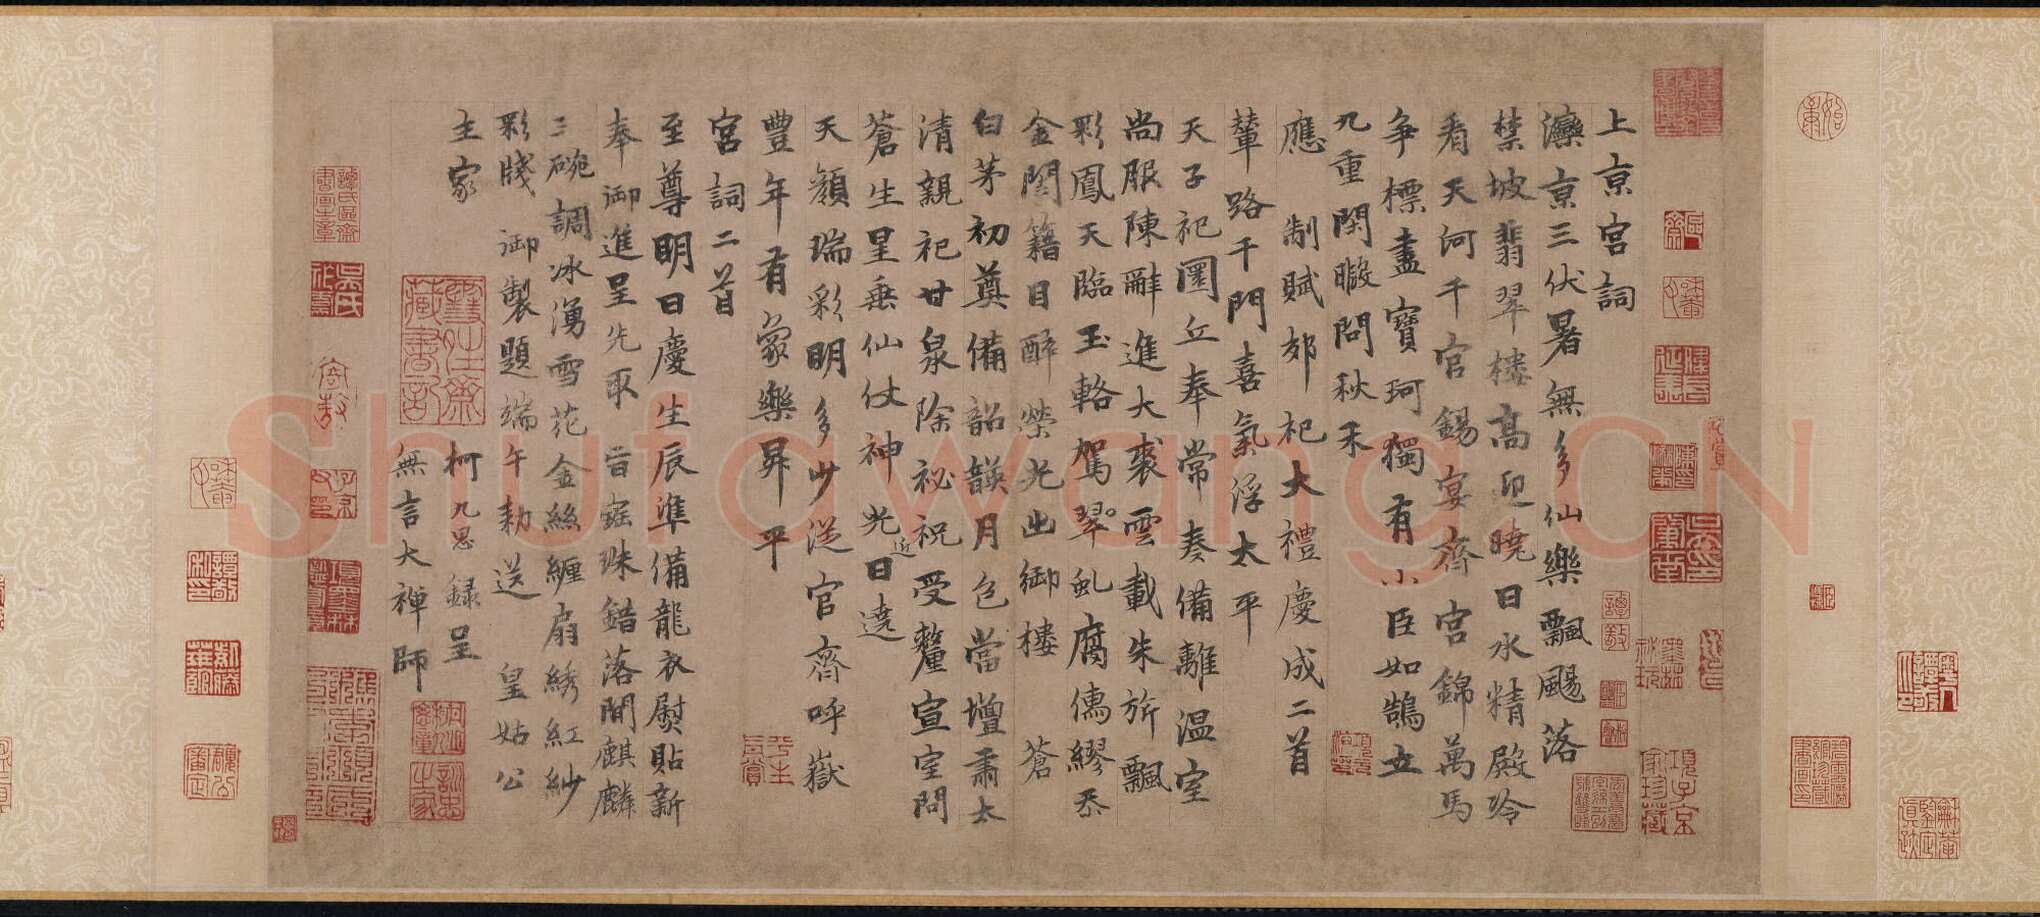 上京宮詞
灤京三伏暑無多仙樂飄颺落
禁坡翡翠樓高迎曉日水精殿冷
看天河千官錫宴齊宮錦萬馬
爭標盡寶珂獨有小臣如鵠立
九重閑暇問秋禾
應制賦郊祀大禮慶成二首
輦路千門喜氣浮太平
天子祀圜丘奉常奏備離溫室
尚服陳辭進大裘雲載朱旂飄
彩鳳天臨玉輅駕翠虬腐儒繆忝
金閨籍目醉榮光出御樓 蒼
白茅初奠備韶韺月色當壇肅太
清親祀甘泉除祕祝受釐宣室問
蒼生星垂仙仗神光近日遶
天顏瑞彩明多少從官齊呼嶽
豐年有象樂昇平
宮詞二首
至尊明日慶生辰準備龍衣熨貼新
奉御進呈先取旨鋸珠錯落間麒麟
三碗調冰湧雪花金絲纏扇綉紅紗
彩牋御製題端午勅送皇姑公
主家
柯九思錄呈
無言大禪師
ShufawangCN